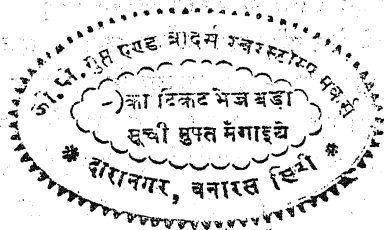 जी. पी. गुप्त एण्ड ब्रादर्स रबरस्टाम्प मेकर्स
-)का टिकट भेज बड़ी
सूच्ची मुफ्त मँगाइये
* दारानगर, बनारस सिटी *